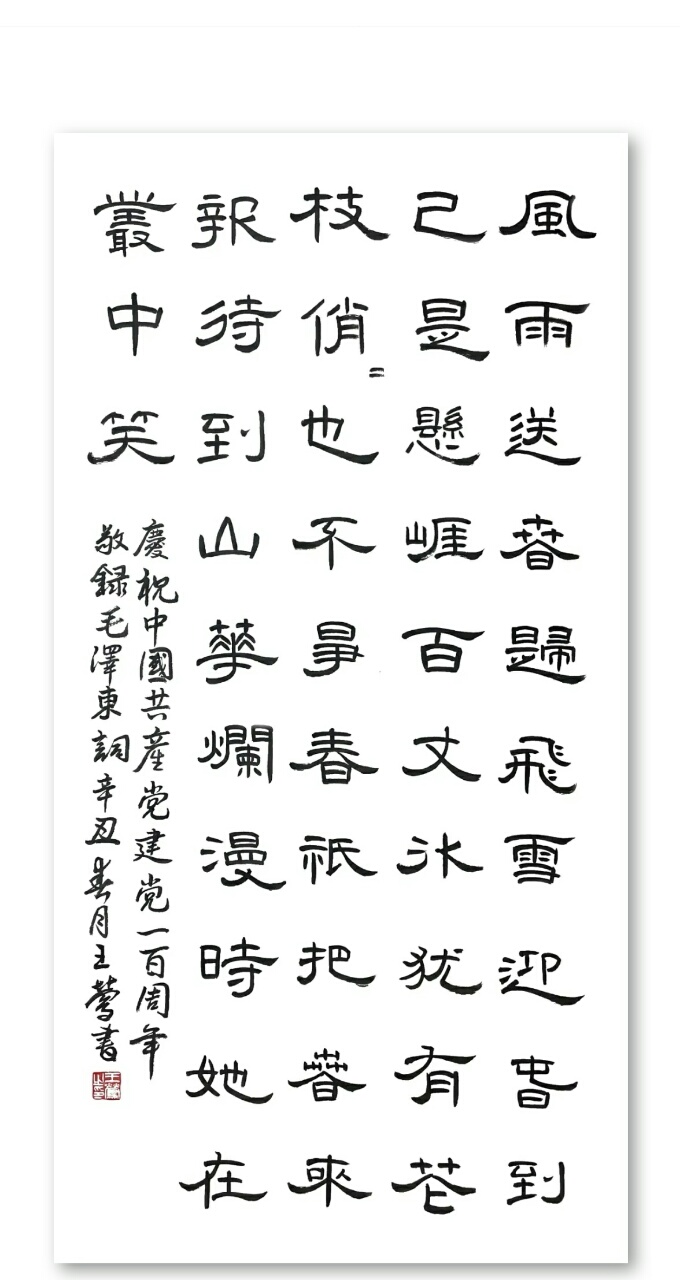 風雨送春歸飛雪迎春到
已是懸崖百丈冰猶有花
枝俏〻也不爭春祇把春來
報待到山華爛漫時她在
叢中笑
慶祝中國共產党建党一百周年
敬録毛澤東詞辛丑春月王鶯书